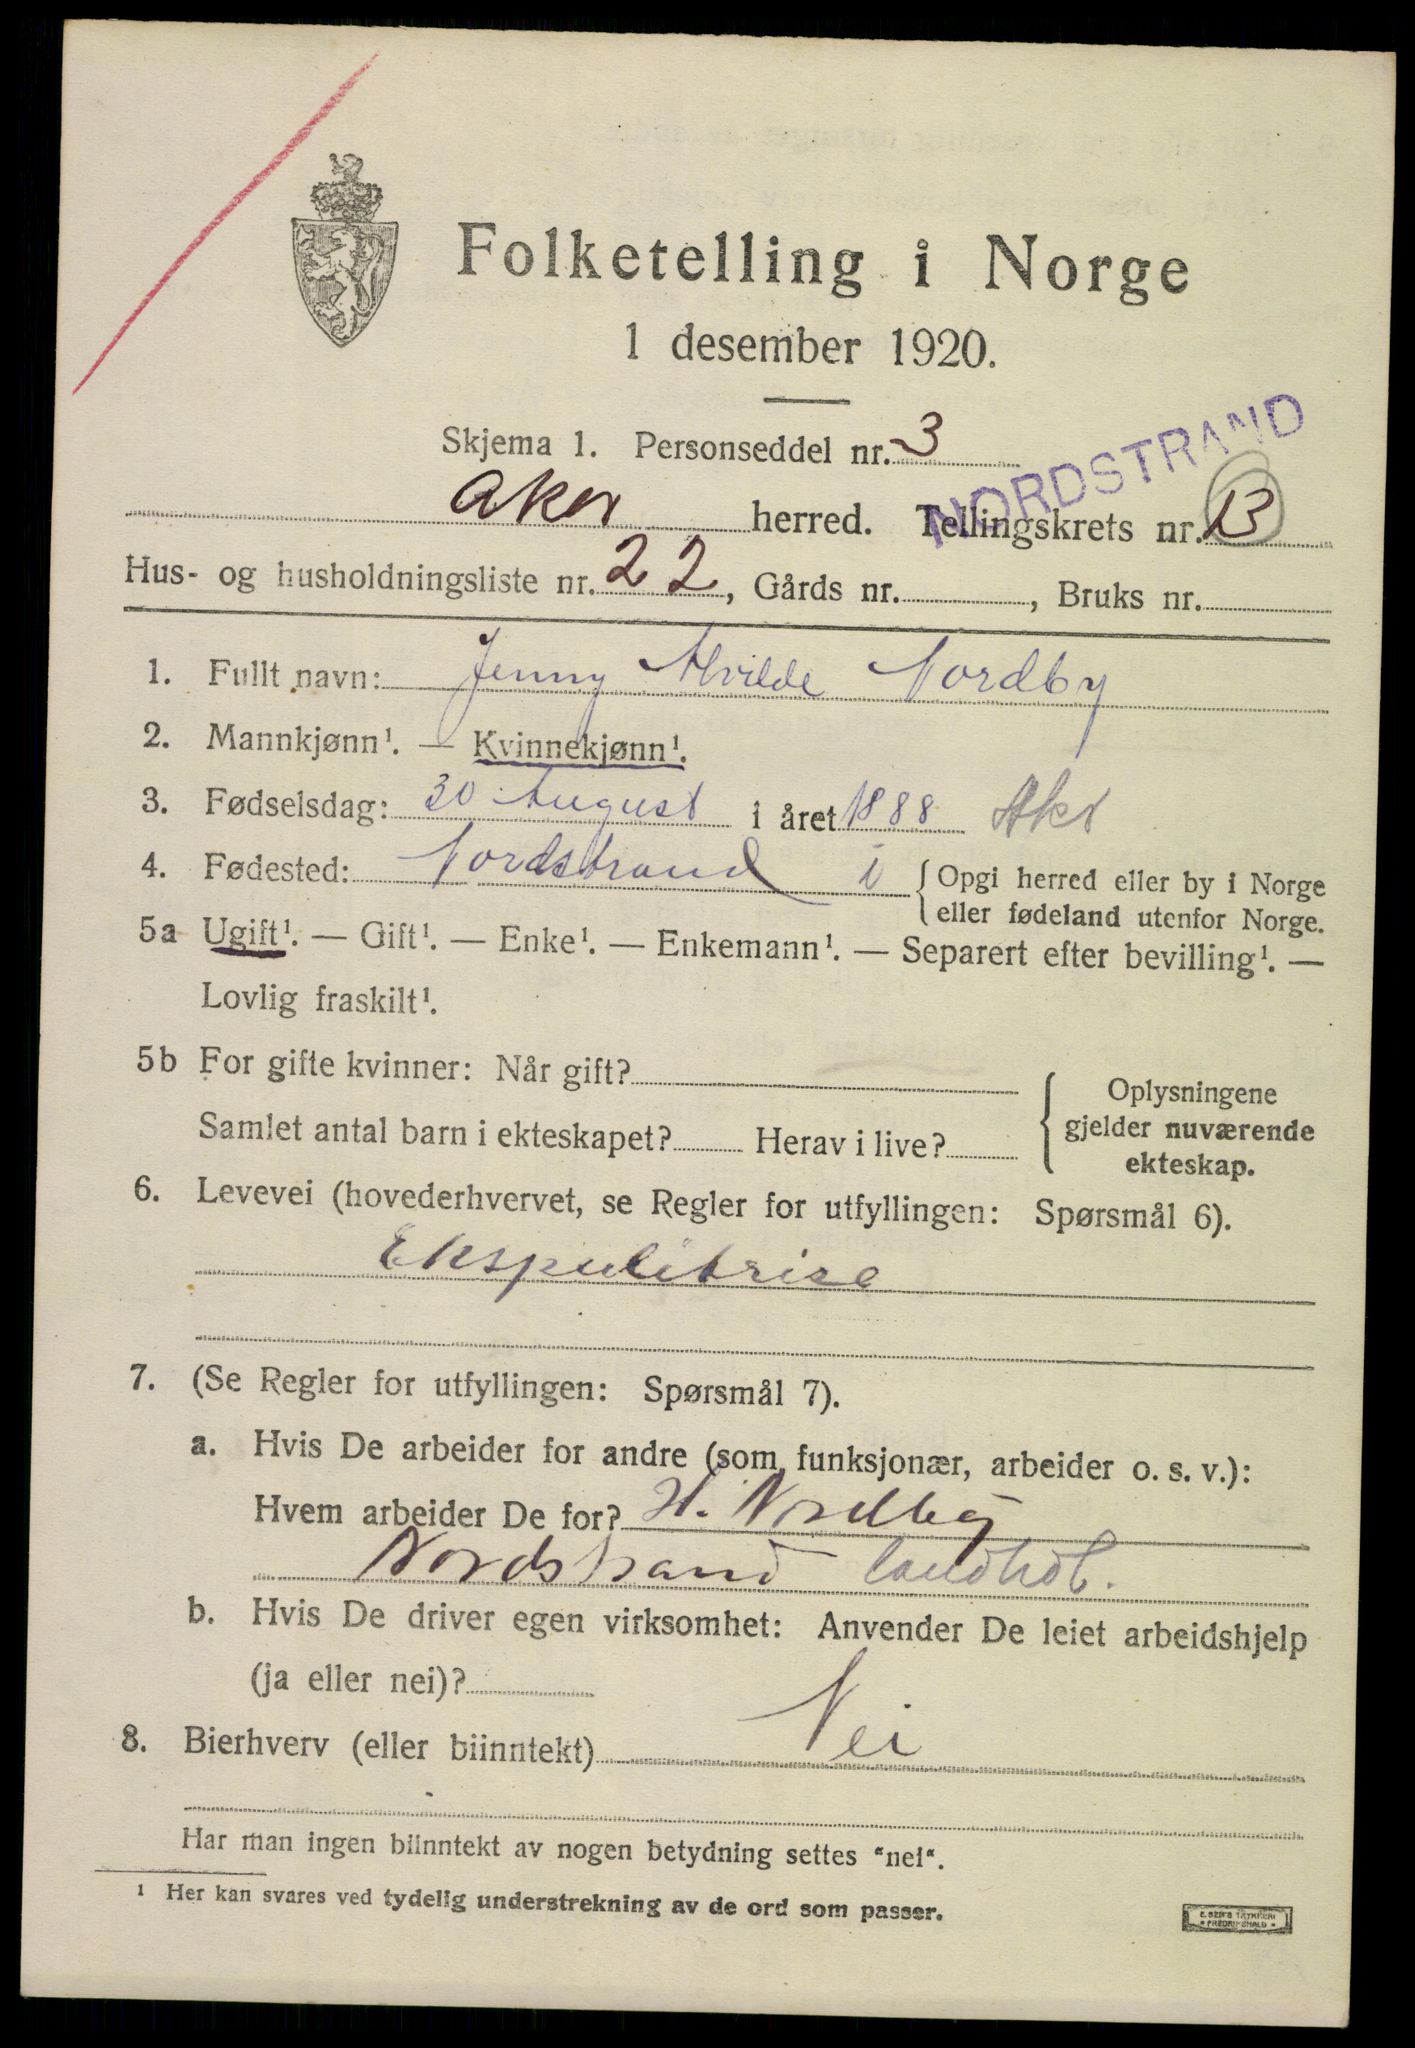 Folketelling i Norge
1 desember 1920.
Skjema 1. Personseddel nr. 3
NORDSTRAND
Aker herred. Tellingskrets nr. 13
Hus- og husholdningsliste nr. 22, Gårds nr. , Bruks nr.
1. Fullt navn: Jenny Alvilde Nordby
2. Mannkjønn¹. — Kvinnekjønn¹.
3. Fødselsdag: 30 August i året 1888 Aker
4. Fødested: Nordstrand i { Opgi herred eller by i Norge
eller fødeland utenfor Norge.
5a Ugift¹. — Gift¹. — Enke¹. — Enkemann¹. — Separert efter bevilling¹. —
Lovlig fraskilt¹.
5b For gifte kvinner: Når gift?
Samlet antal barn i ekteskapet? Herav i live?
{ Oplysningene
gjelder nuværende
ekteskap.
6. Levevei (hovederhvervet, se Regler for utfyllingen: Spørsmål 6).
Ekspeditrise
7. (Se Regler for utfyllingen: Spørsmål 7).
a. Hvis De arbeider for andre (som funksjonær, arbeider o. s. v.):
Hvem arbeider De for? H. Nordby
Nordstrand landhdl.
b. Hvis De driver egen virksomhet: Anvender De leiet arbeidshjelp
(ja eller nei)?
8. Bierhverv (eller biinntekt) Nei
Har man ingen biinntekt av nogen betydning settes "nei".
¹ Her kan svares ved tydelig understrekning av de ord som passer.